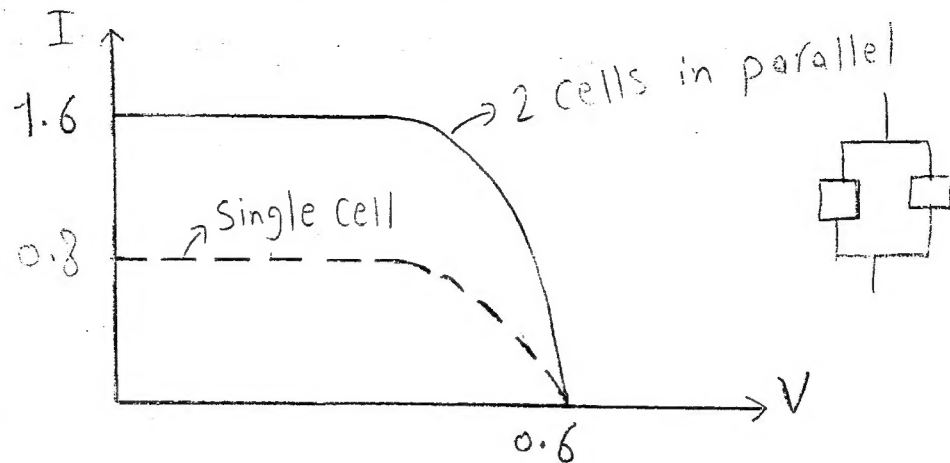 I
1.6
2 cells in parallel
single cell
0.8
0.6
V